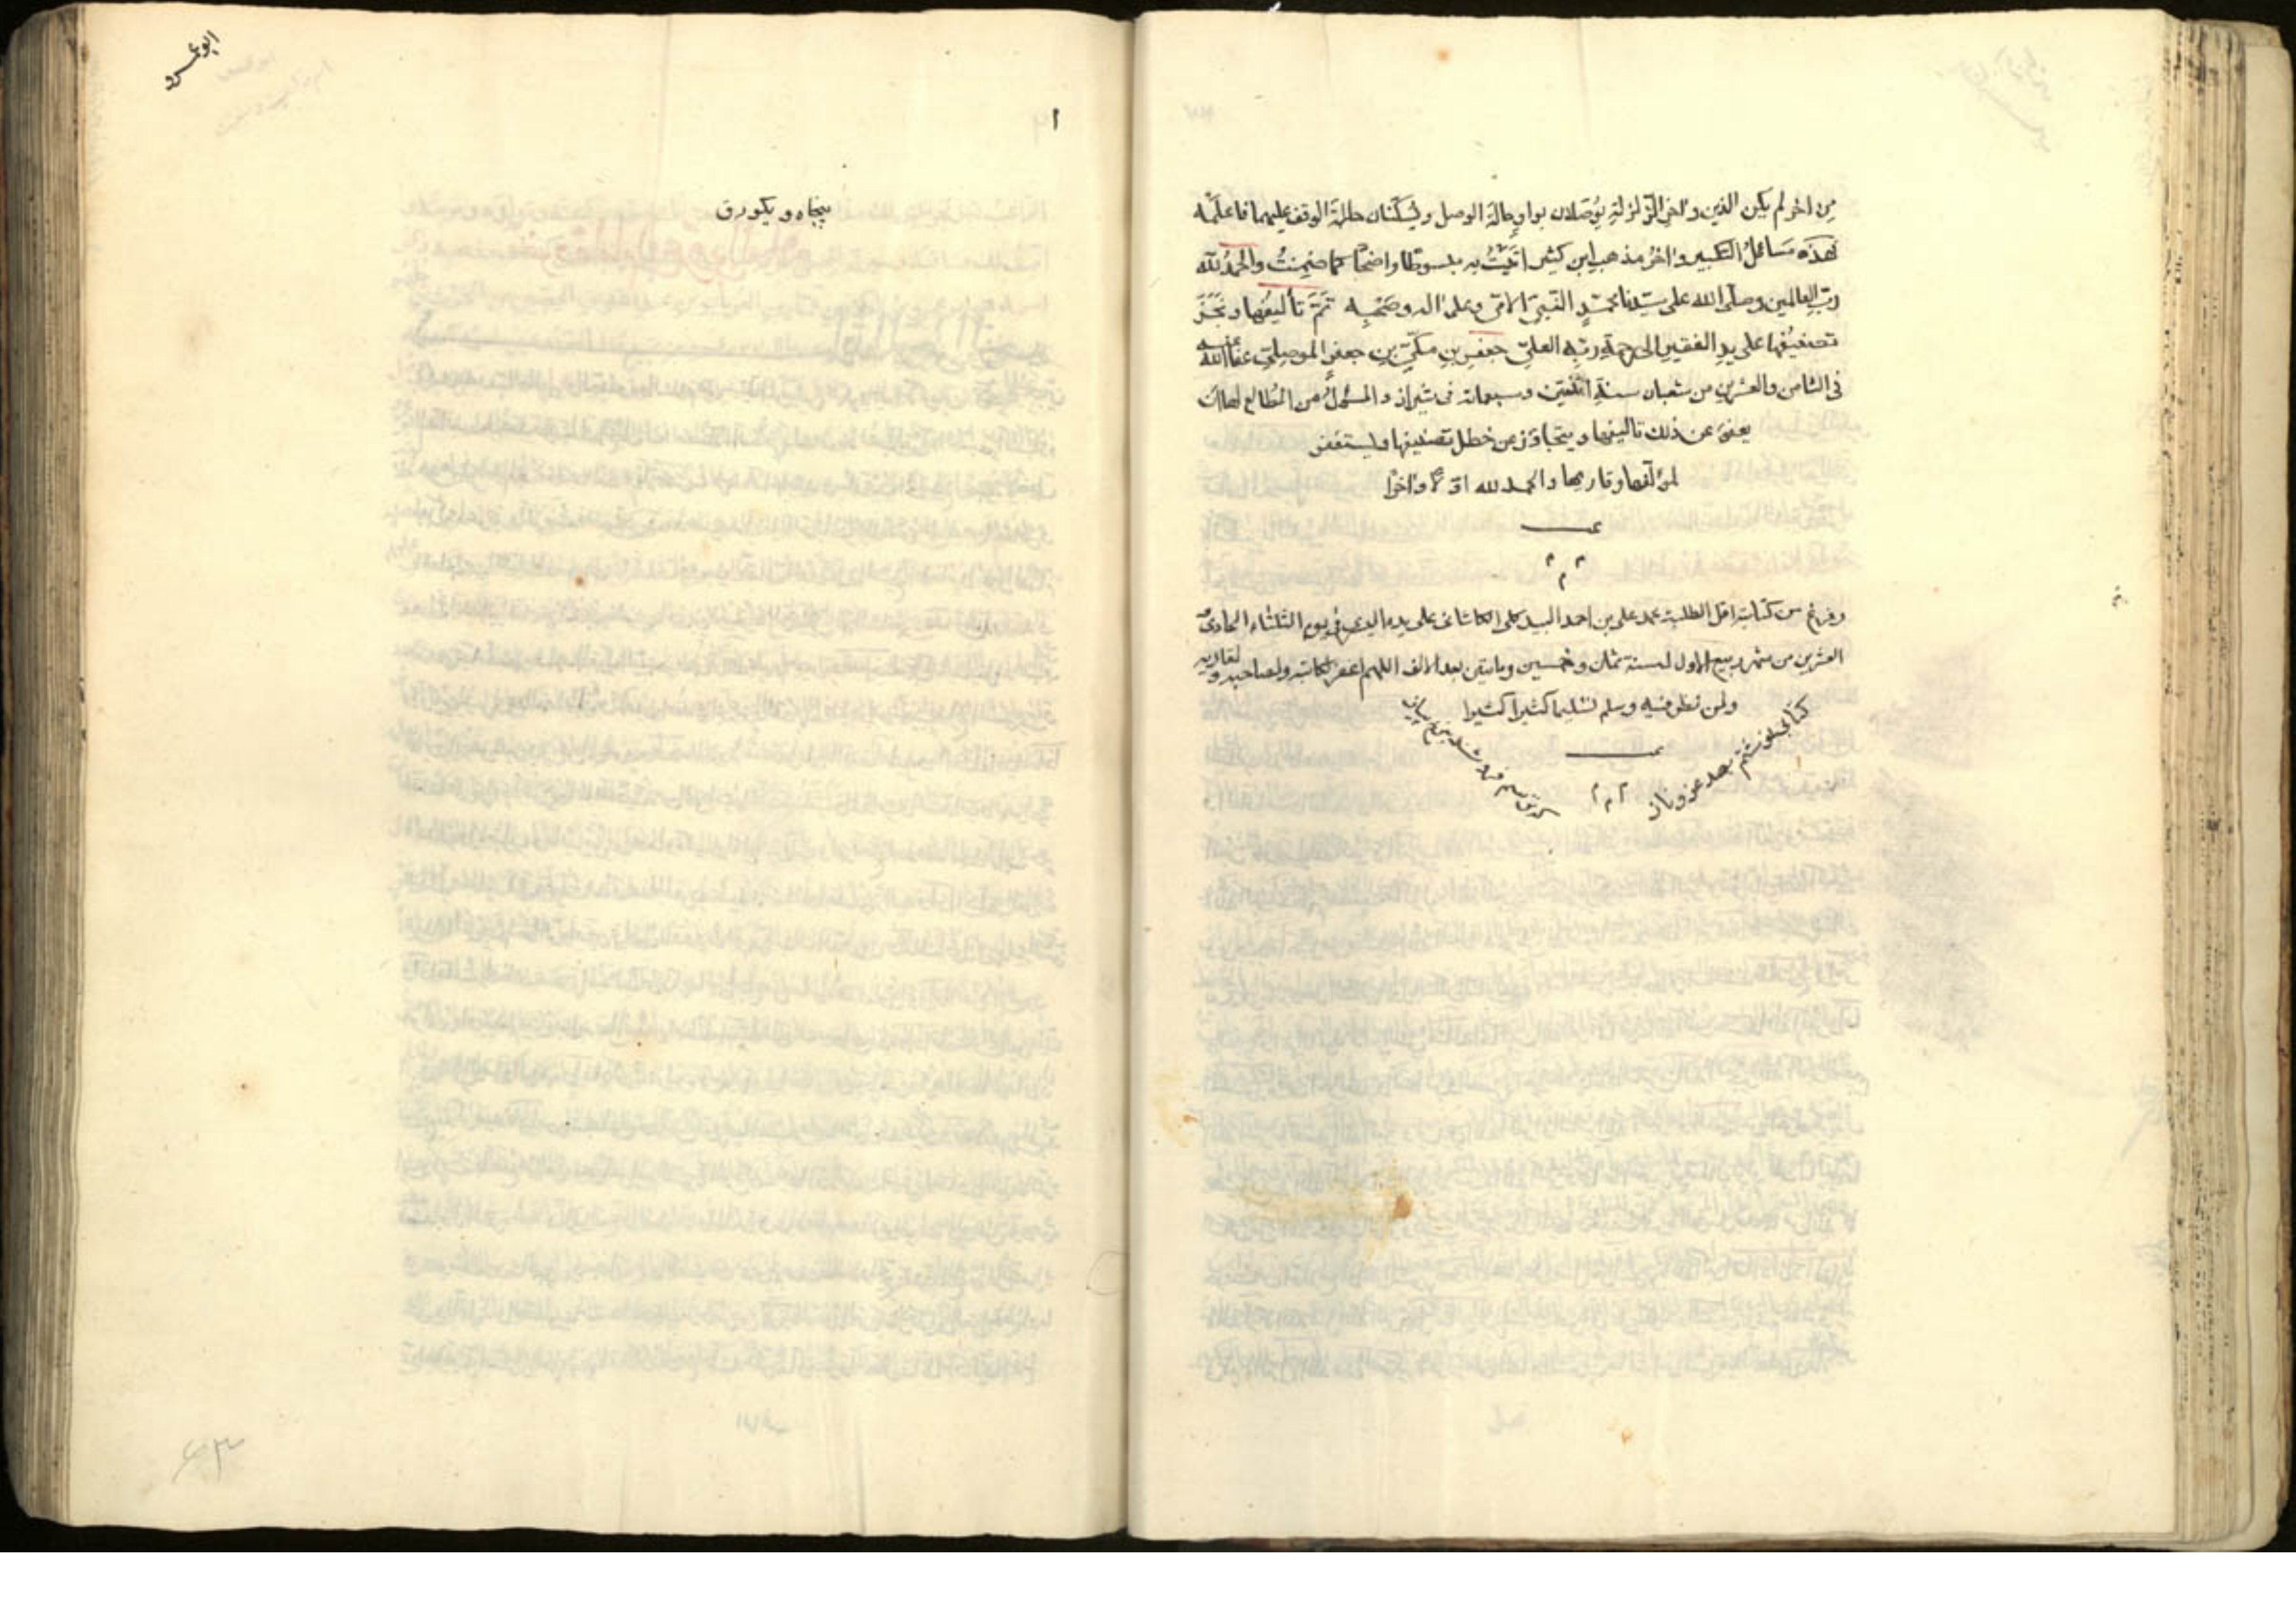 من اخر لم يكن الذين واخر الزلزلة يوصلان بواو حالة الوصل ويسكنان حالة الوقف عليهما فاعلمه
فهذه مسائل التكبير واخر مذهب ابن كثير اتيت به مبسوطا واضحا كما ضمنت والحمد لله
رب العالمين وصلى الله على سيدنا محمد النبي الامي وعلى اله وصحبه تم تأليفها ونجز
تصنيفها على يد الفقير الى رحمة ربه العلي جعفر بن مكي بن جعفر الموصلي عفا الله عنه
في الثامن والعشرين من شعبان سنة اثنتين وسبعمائة في شيراز والمسؤل من المطالع لها ان
يعفو عن ذلك تاليفها ويتجاوز عن خطل تصنيفها وليستغفر
لمؤلفها وقاريها والحمد لله اولا واخرا
وفرغ من كتابته اقل الطلبة محمد علي بن احمد البيدكلي الكاشاني على يده اليمنى في يوم الثلثاء الحادي
العشرين من شهر ربيع الاول لسنة ثمان وخمسين ومايتين بعد الالف اللهم اغفر لكاتبه ولصاحبه ولقاريه
ولمن نظر فيه وسلم تسليما كثيرا كثيرا
بصد عز وناز
ابو عمرو
١
پنجاه و يكورق